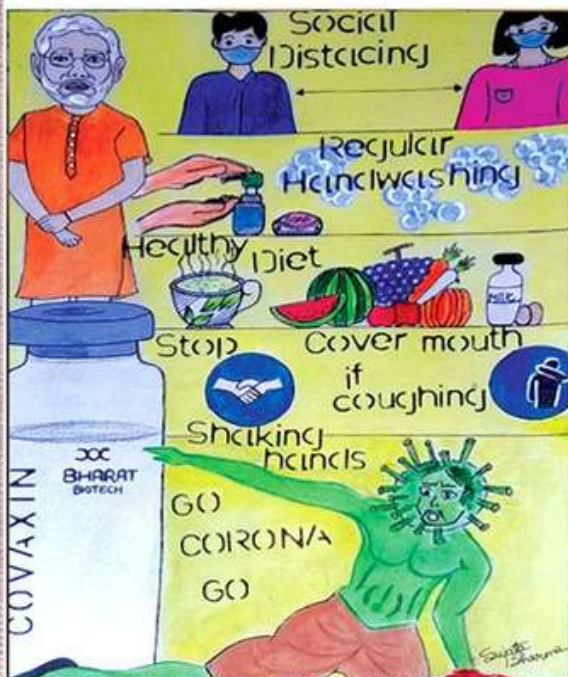 Social
Distacing
Regular
Handwashing
Healthy Diet
MILK
Stop
Shaking
hands
Cover mouth
if
coughing
BHARAT
BIOTECH
COVAXIN
GO
CORONA
GO
Sharma